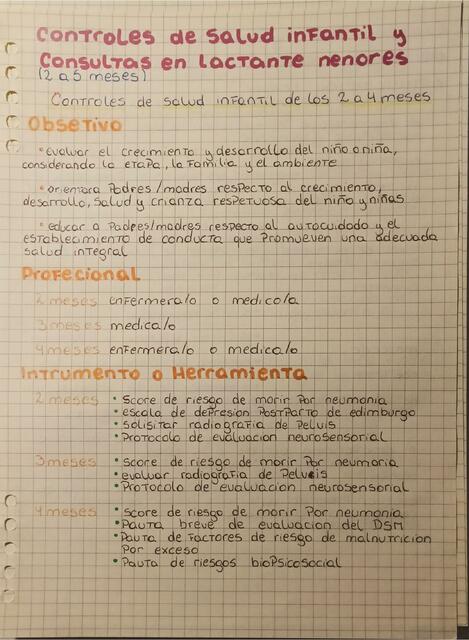 Controles de salud infantil y
Consultas en lactante nenores
(2 a 5 meses)
Controles de salud infantil de los 2 a 4 meses
Obsetivo
• evaluar el crecimiento y desarrollo del niño o niña,
considerando la etapa, la familia y el ambiente
• orientara Padres/madres respecto al crecimiento,
desarrollo, salud y crianza respetuosa del niño y niñas
• educar a Padres/madres respecto al autocuidado y el
establecimiento de conducta que Promueven una adecuada
salud integral
Profecional
2 meses enfermera/o o medico/a
3 meses medica/o
4 meses enfermera/o o medica/o
Intrumento o Herramienta
2 meses • Score de riesgo de morir Por neumonia
• escala de depresion Postparto de edimburgo
• solisitar radiografia de Pelvis
• Protocolo de evaluacion neurosensorial
3 meses • Score de riesgo de morir Por neumonia
• evaluar radiografia de Pelvis
• Protocolo de evaluacion neurosensorial
4 meses • Score de riesgo de morir Por neumonia
• Pauta breve de evaluacion del DSM
• Pauta de Factores de riesgo de malnutricion
Por exceso
• Pauta de riesgos biopsicosocial